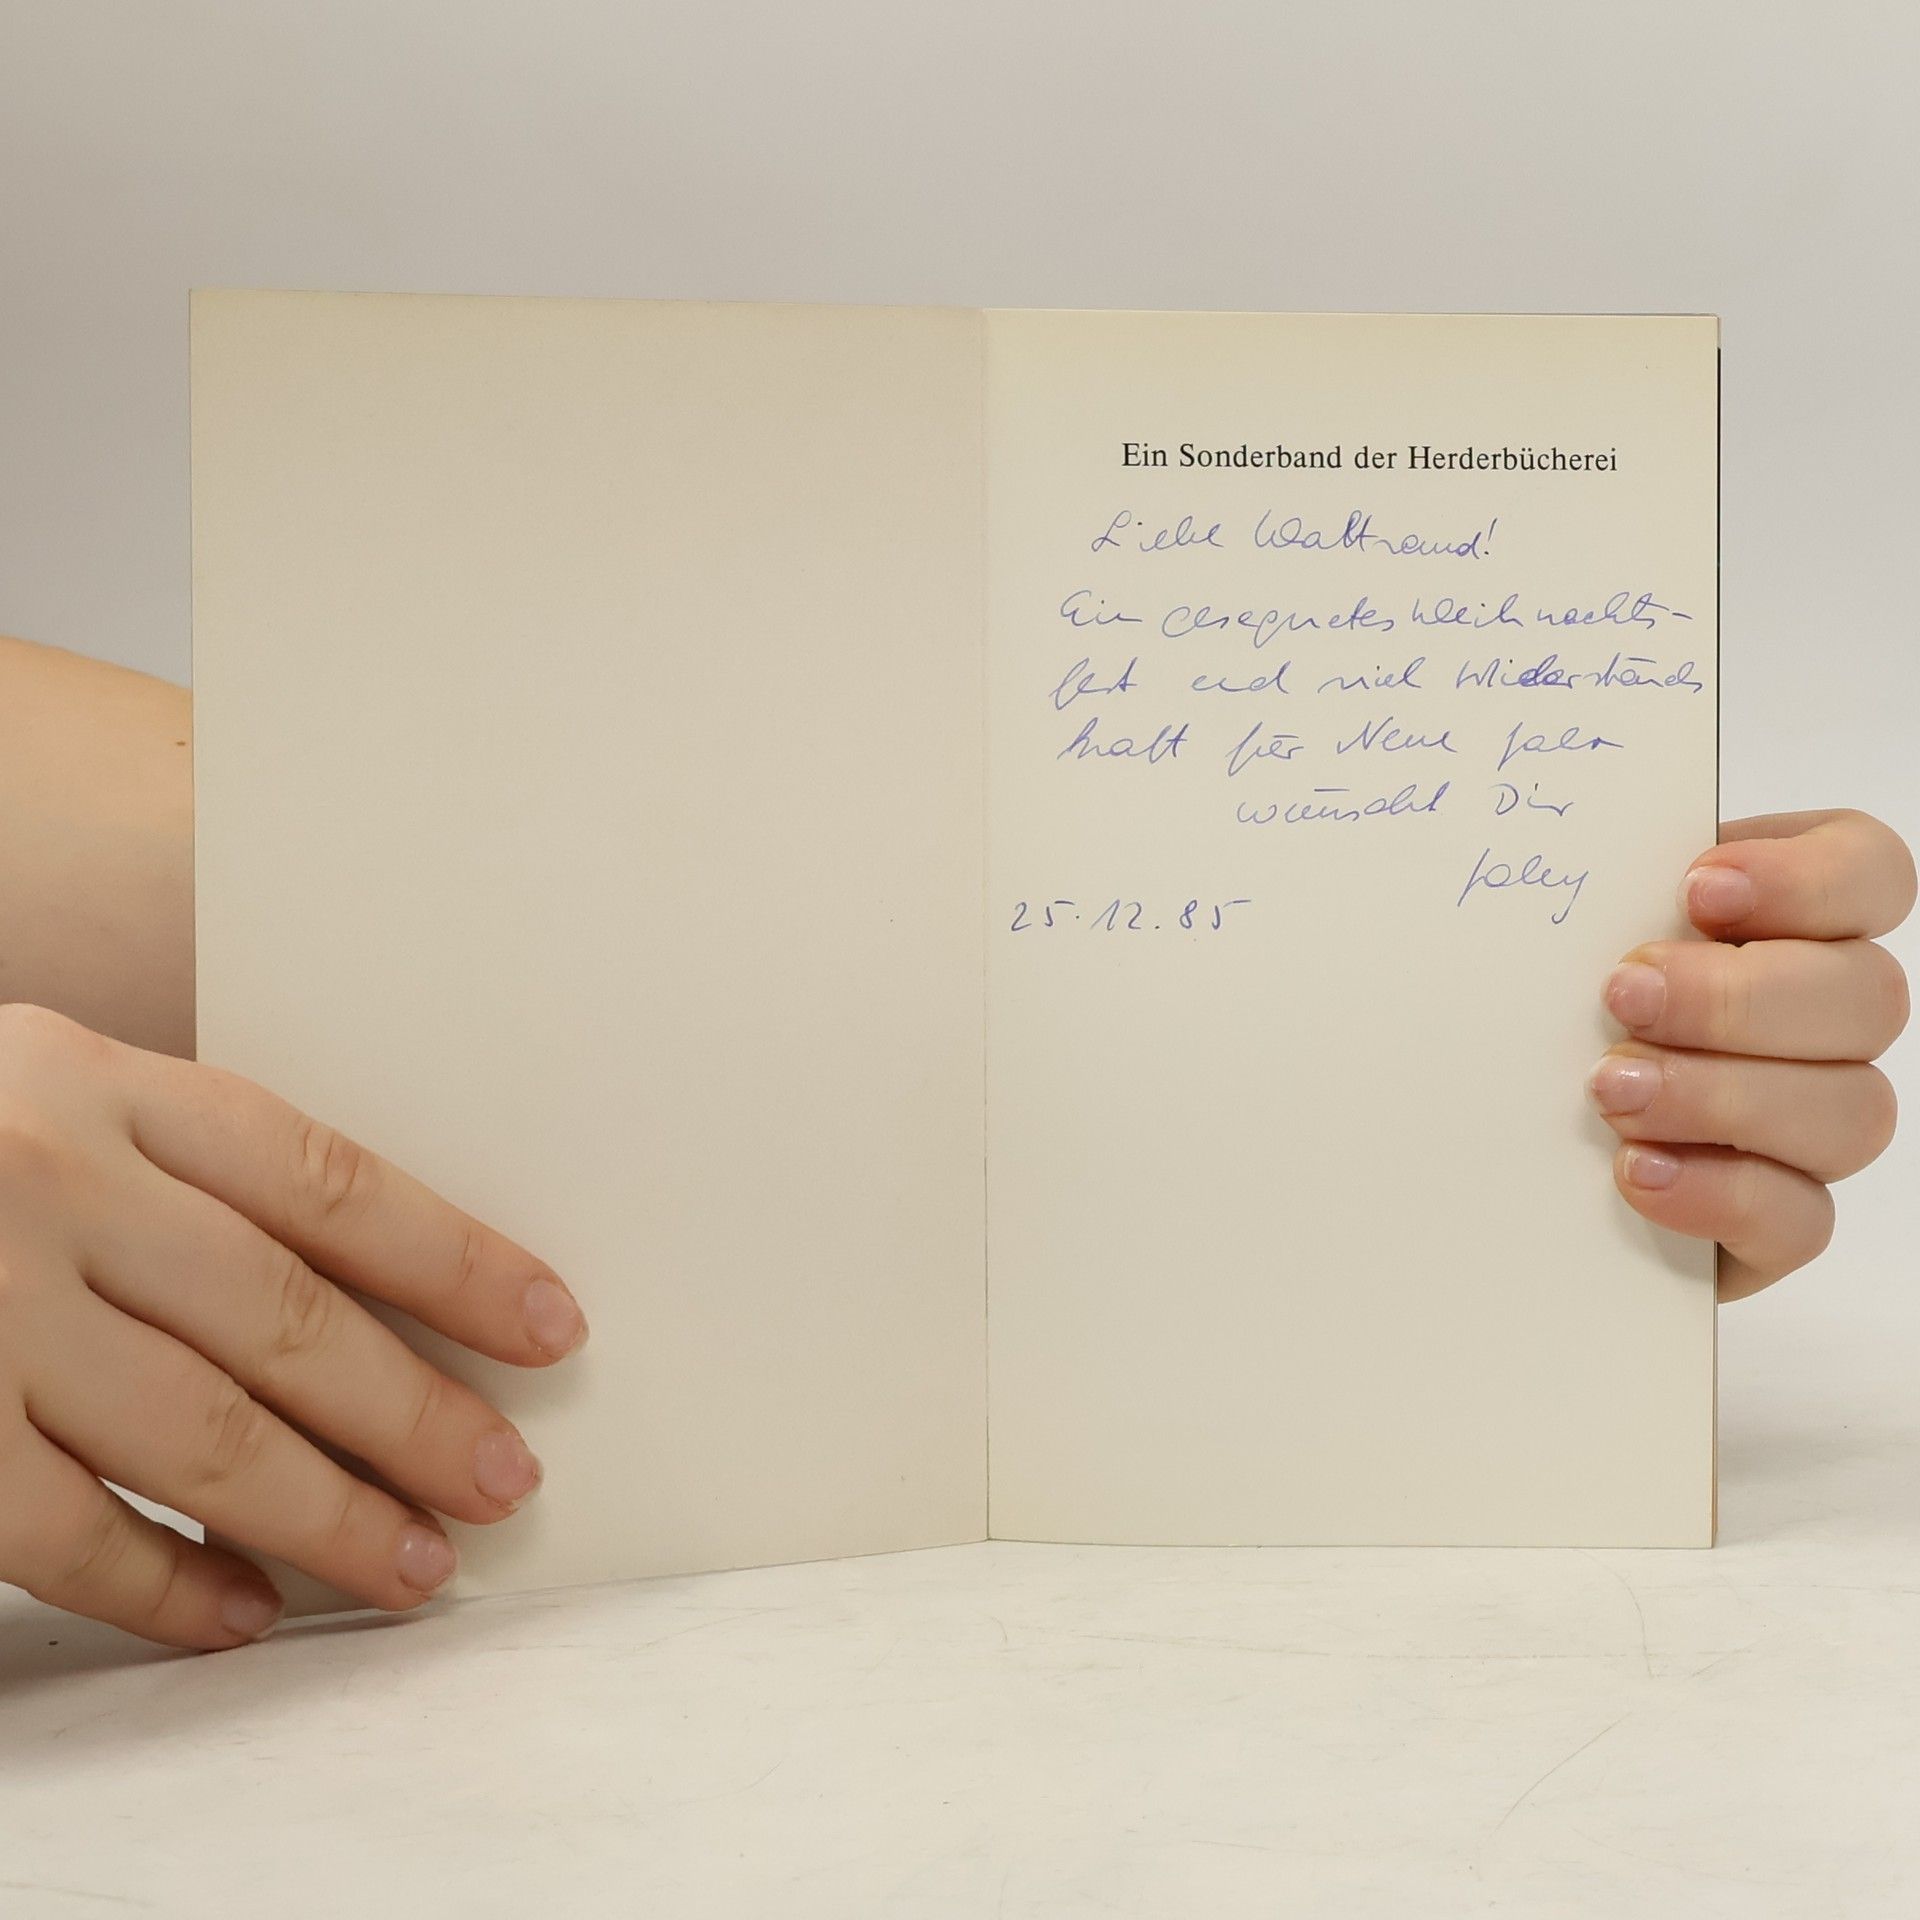 Ein Sonderband der Herderbücherei
Liebe Waltraud!
Ein gesegnetes Weihnachts-
fest und viel Widerstands
kraft für Neue Jahr
wünscht Dir
25.12.85